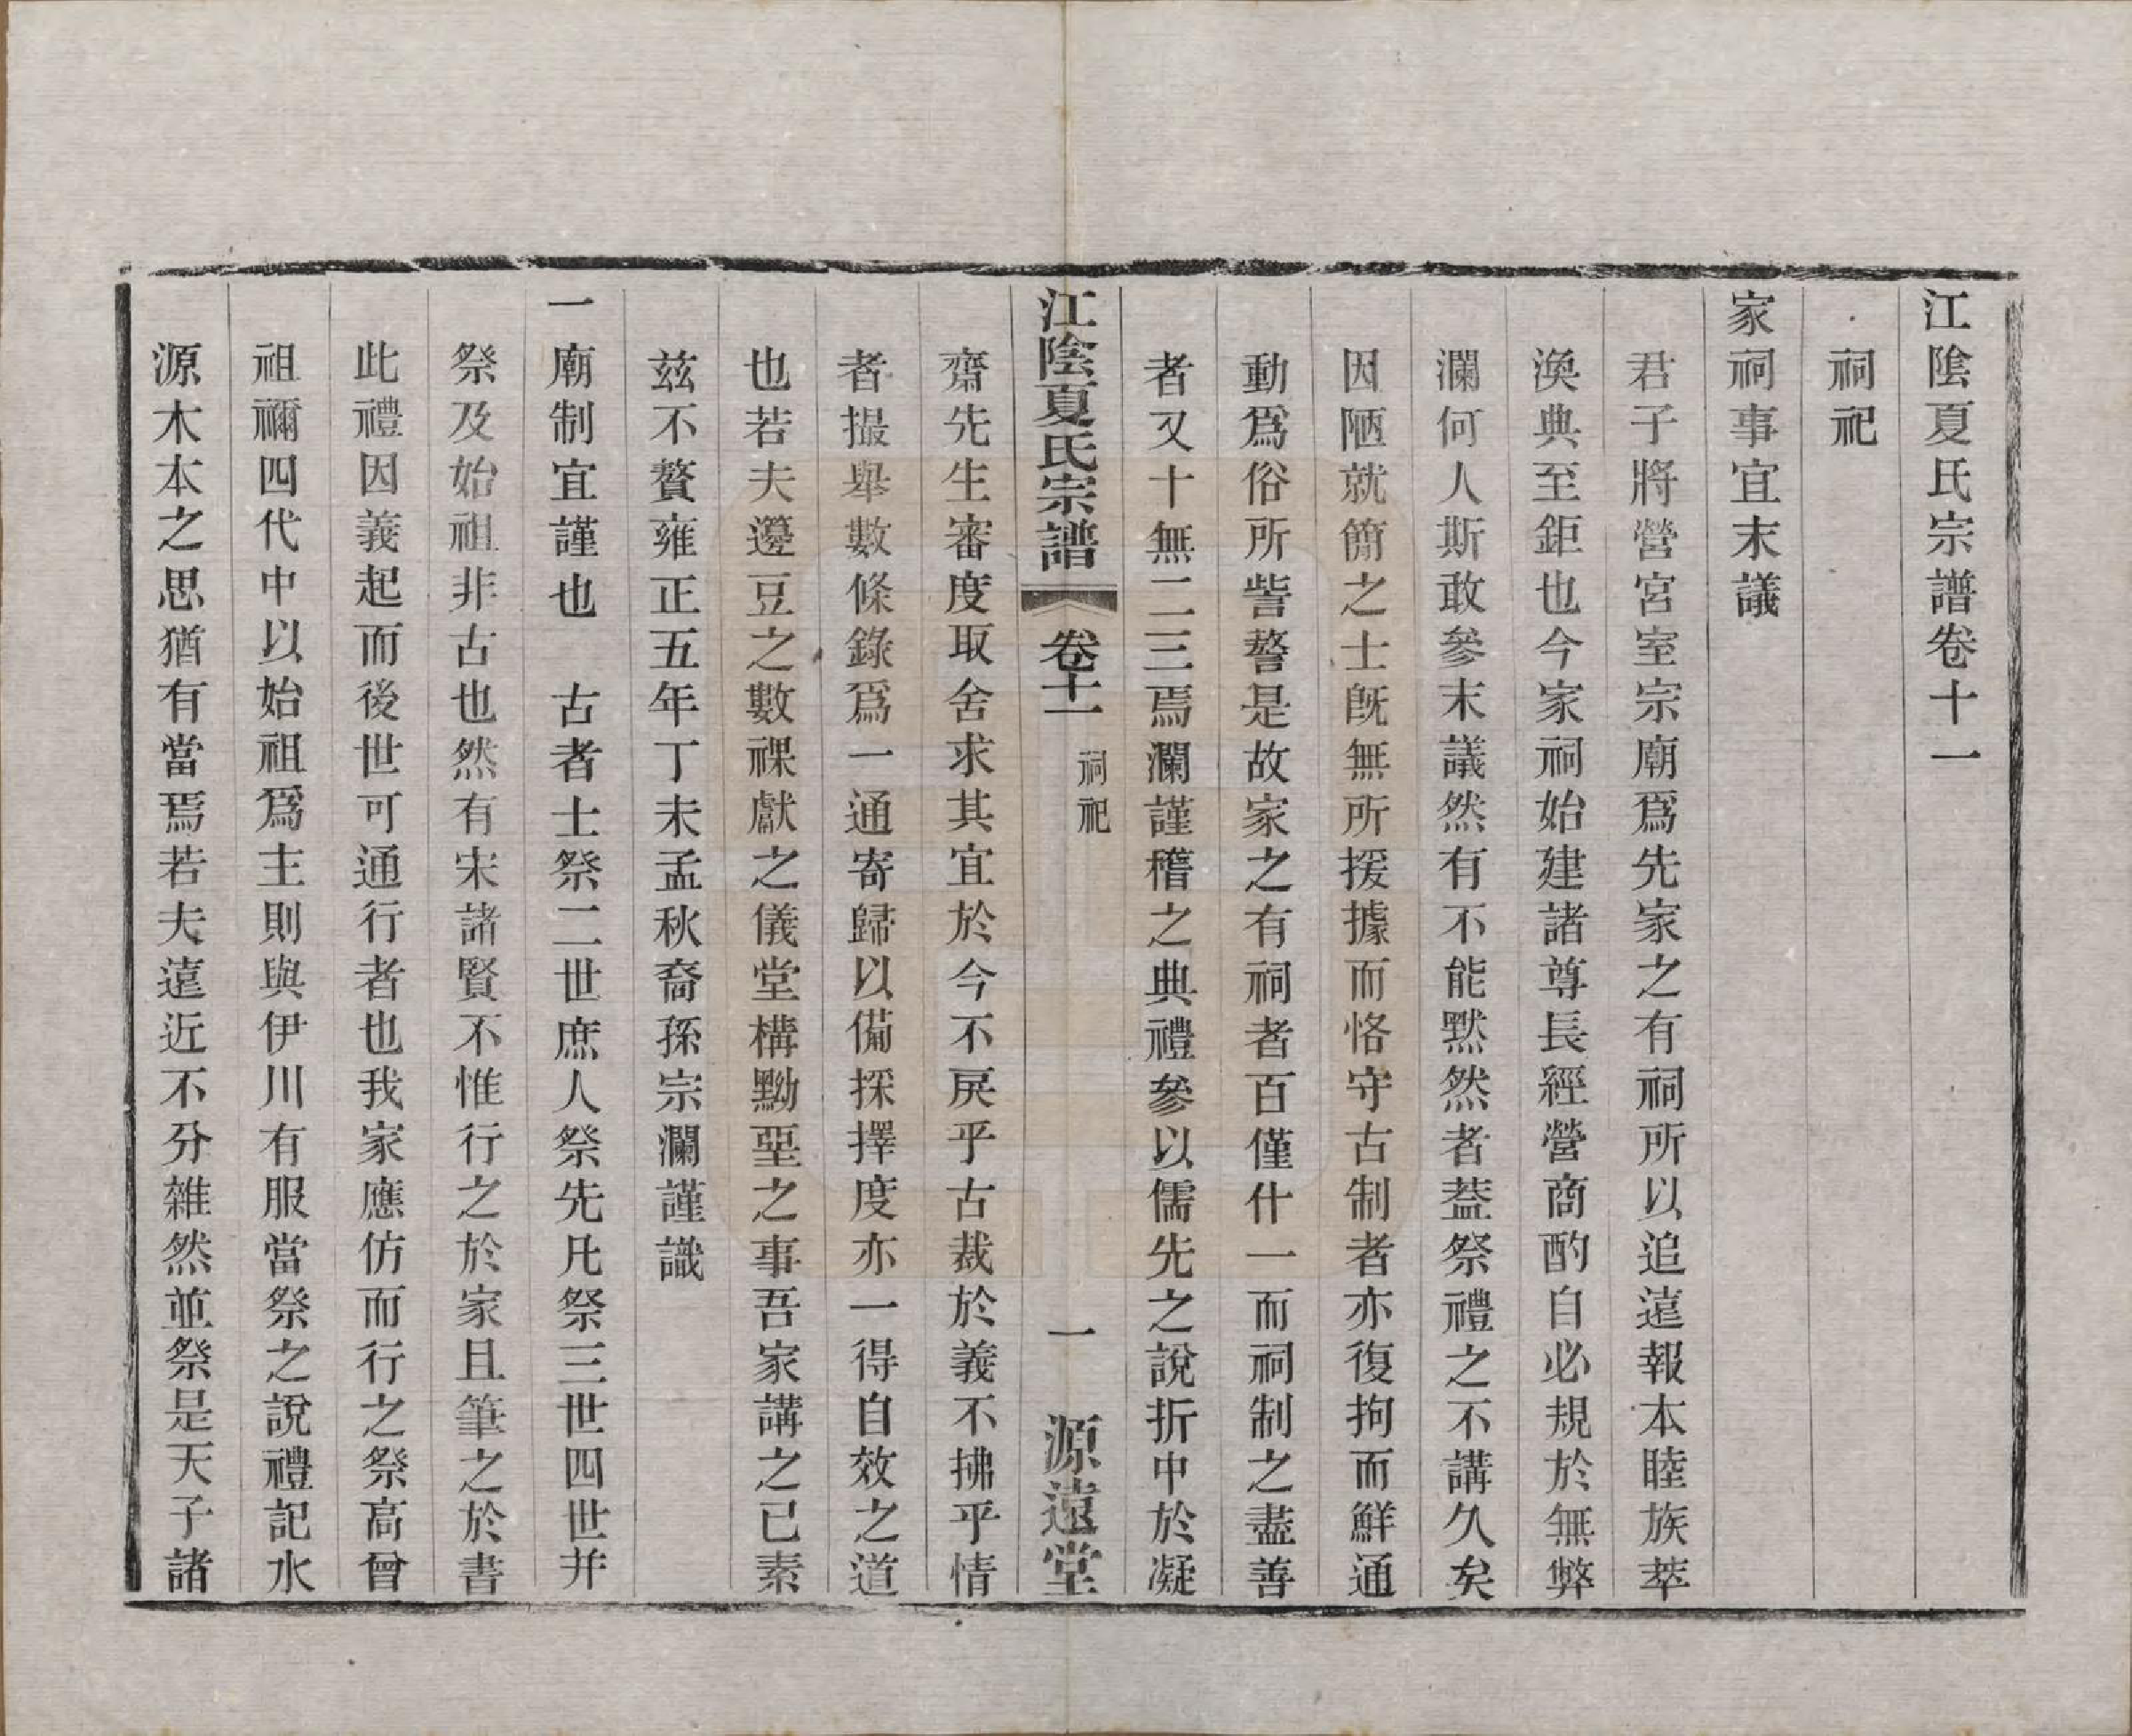 江陰夏氏宗譜卷十一
祠祀
家祠事宜末議
君子將營宮室宗廟爲先家之有祠所以追遠報本睦族萃
渙典至鉅也今家祠始建諸尊長經營商酌自必規於無弊
瀾何人斯敢參末議然有不能默然者葢祭禮之不講久矣
因陋就簡之士旣無所援據而恪守古制者亦復拘而鮮通
動爲俗所訾謷是故家之有祠者百僅什一而祠制之盡善
者又十無二三焉瀾謹稽之典禮參以儒先之說折中於凝
江陰夏氏宗譜 卷十一 祠祀 一 源遠堂
齋先生審度取舍求其宜於今不戾乎古裁於義不拂乎情
者撮舉數條錄爲一通寄歸以備採擇度亦一得自效之道
也若夫籩豆之數祼獻之儀堂構黝堊之事吾家講之已素
茲不贅雍正五年丁未孟秋裔孫宗瀾謹識
一廟制宜謹也 古者士祭二世庶人祭先凡祭三世四世并
祭及始祖非古也然有宋諸賢不惟行之於家且筆之於書
此禮因義起而後世可通行者也我家應仿而行之祭高曾
祖禰四代中以始祖爲主則與伊川有服當祭之說禮記水
源木本之思猶有當焉若夫遠近不分雜然並祭是天子諸